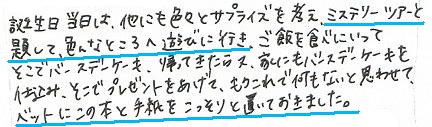 誕生日当日は、他にも色々とサプライズを考え、ミステリーツアーと
題して、色んなところへ遊びに行き、ご飯を食べにいって
そこでバースデーケーキ、帰ってきたらまた、家にもバースデーケーキを
仕込み、そこでプレゼントをあげて、もうこれで何もないと思わせて、
ベットにこの本と手紙をこっそりと置いておきました。